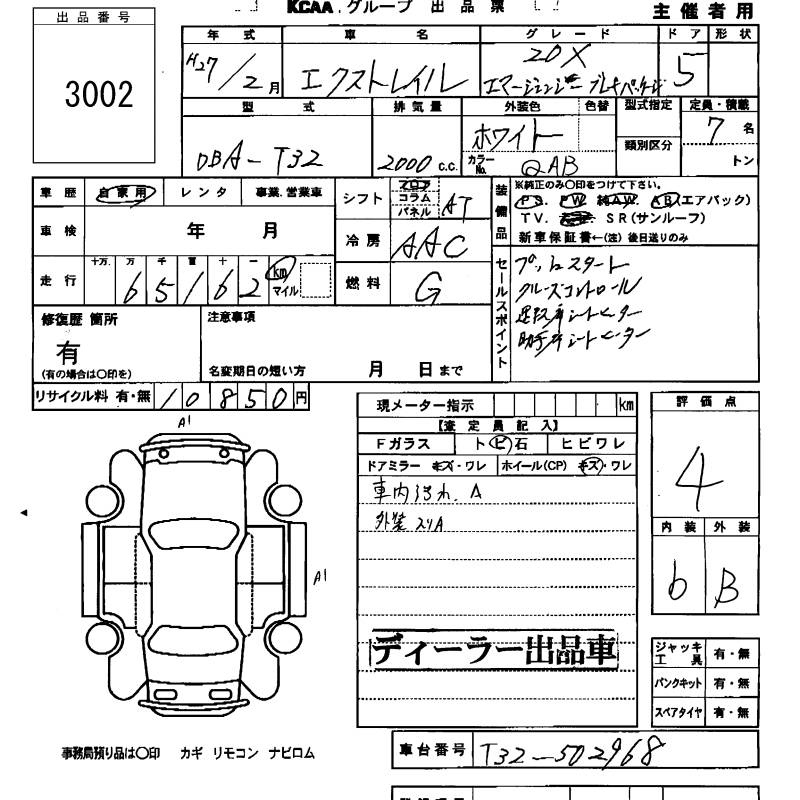 KCAA グループ 出品票
主催者用
出品番号
3002
年式 車名 グレード ドア 形状
H27/2月 エクストレイル 20X エマージェンシーブレーキパッケージ 5
型式 排気量 外装色 色替 型式指定 定員・積載
DBA-T32 2000 c.c. ホワイト カラーNo. QAB 類別区分 7名 トン
車歴 自家用 レンタ 事業.営業車
シフト フロア コラム パネル AT
装備品
※純正のみ〇印をつけて下さい。
PS. PW 純AW. AB(エアバック)
TV. SR(サンルーフ)
新車保証書←(注)後日送りのみ
車検 年 月
冷房 AAC
走行 十万 万 千 百 十 一 65162 km マイル
燃料 G
セールスポイント
プッシュスタート
クルーズコントロール
運転席シートヒーター
助手席シートヒーター
修復歴 箇所
有
(有の場合は〇印を)
注意事項
名変期日の短い方 月 日まで
リサイクル料 有・無 10850円
現メーター指示 km
【査定員記入】
Fガラス トビ石 ヒビワレ
ドアミラー キズ・ワレ ホイール(CP) キズ・ワレ
車内汚れ. A
外装スリA
ディーラー出品車
評価点
4
内装 外装
b B
ジャッキ工具 有・無
パンクキット 有・無
スペアタイヤ 有・無
A1
A1
事務局預り品は〇印 カギ リモコン ナビロム
車台番号 T32-502968